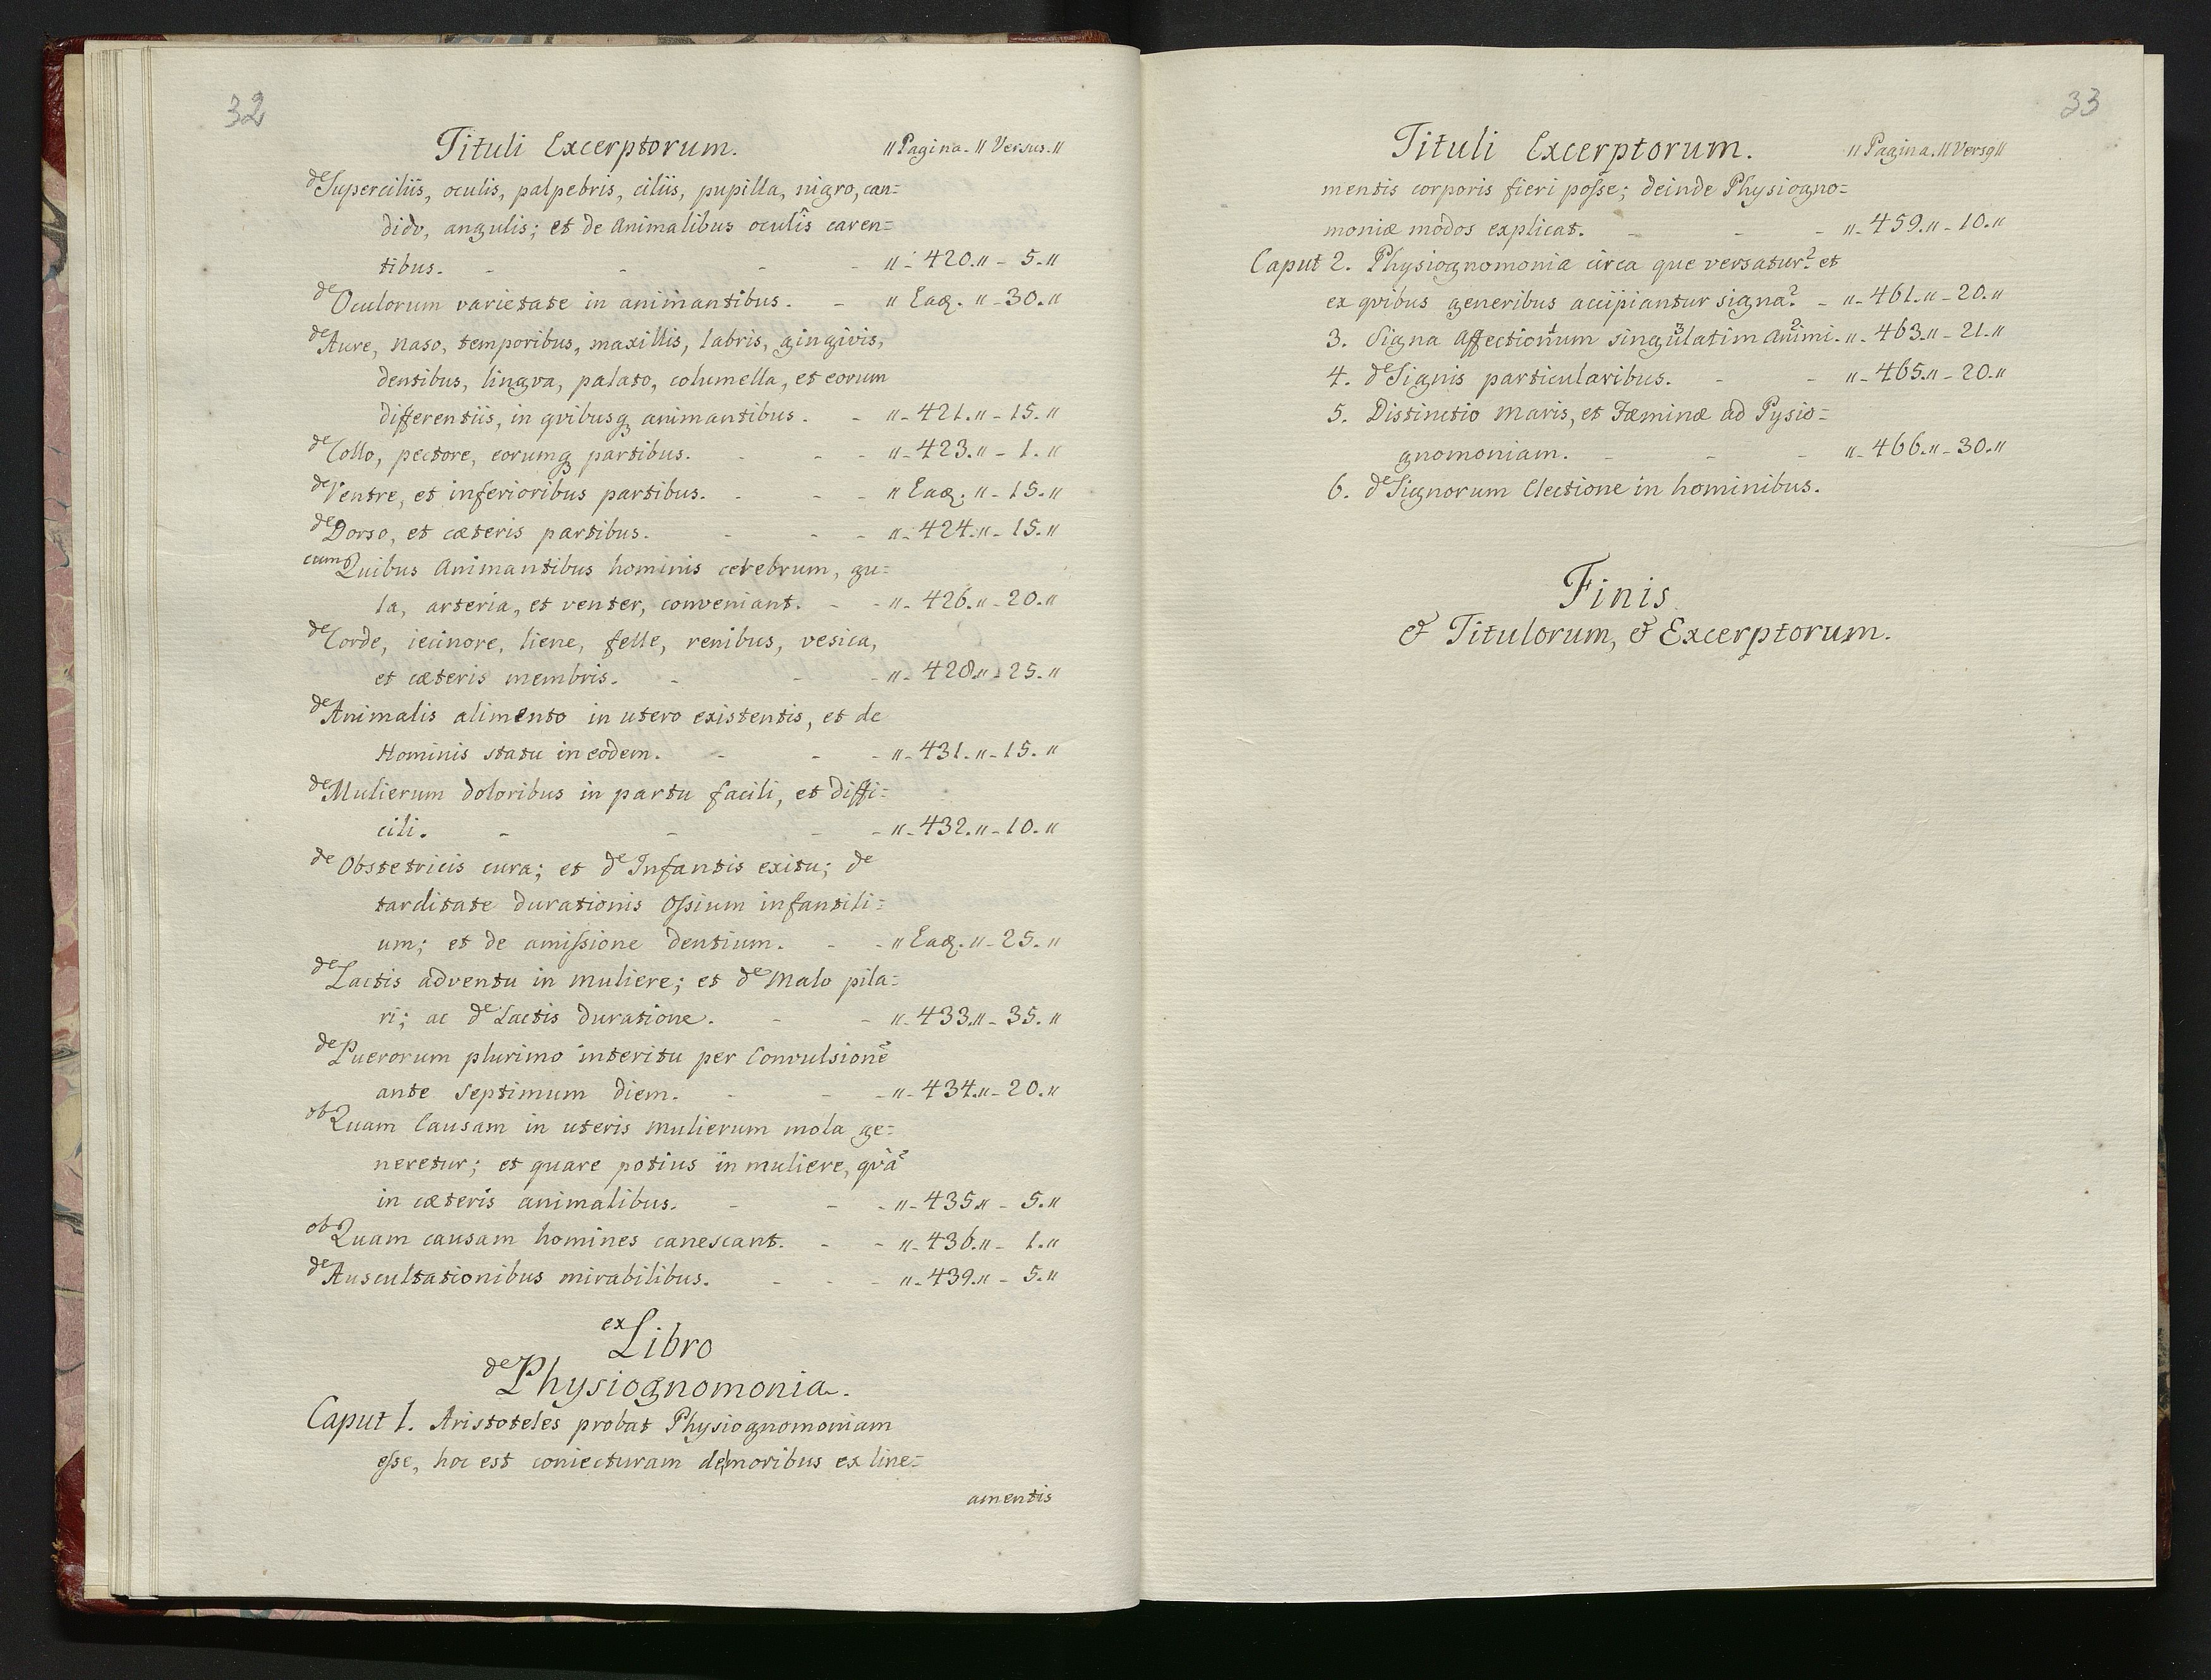 32
Tituli Excerptorum. " Pagina. " Versus. "
de Superciliis, oculis, palpebris, ciliis, pupilla, nigro, can=
dido, angulis; et de Animalibus oculis caren=
tibus. - - - - " - 420. " - 5. "
de Oculorum varietate in animantibus. - " Eaq. " - 30. "
de Aure, naso, temporibus, maxillis, labris, gingivis,
dentibus, lingva, palato, columella, et eorum
differentiis, in qvibusq animantibus. - " - 421. " - 15. "
de Collo, pectore, eorumq partibus. - - - " - 423. " - 1. "
de Ventre, et inferioribus partibus. - - - " Eaq. " - 15. "
de Dorso, et cæteris partibus. - - - " - 424. " - 15. "
cum Quibus Animantibus hominis cerebrum, gu=
la, arteria, et venter, conveniant. - - " - 426. " - 20. "
de Corde, iecinore, liene, felle, renibus, vesica,
et cæteris membris. - - - " - 428. " - 25. "
de Animalis alimento in utero existentis, et de
Hominis statu in eodem. - - - " - 431. " - 15. "
de Mulierum doloribus in partu facili, et diffi=
cili. - - - - " - 432. " - 10. "
de Obstetricis cura; et de Infantis exitu; de
tarditate durationis Ossium infantili=
um; et de amissione dentium. - - " Eaq. " - 25. "
de Lactis adventu in muliere; et de Malo pila=
ri; ac de Lactis duratione. - - " - 433. " - 35. "
de Puerorum plurimo interitu per Convulsionẽ
ante Septimum diem. - - - " - 434. " - 20. "
ob Quam Causam in uteris mulierum mola ge=
neretur; et quare potius in muliere, qvã
in cæteris animalibus. - - - " - 435. " - 5. "
ob Quam causam homines canescant. - - " - 436. " - 1. "
de Auscultationibus mirabilibus. - - - " - 439. " - 5. "
ex Libro
de Physiognomonia.
Caput 1. Aristoteles probat Physiognomoniam
esse, hoc est coniecturam de moribus ex line=
amentis
33
Tituli Excerptorum. " Pagina. " Versq "
mentis corporis fieri posse; deinde Physiogno=
moniæ modos explicat. - - - " - 459. " - 10. "
Caput 2. Physiognomonia circa que versatur? et
ex qvibus generibus accipiantur signa? - " - 461. " - 20. "
3. Signa Affectionum singulatim Animi. " - 463. " - 21. "
4. de Signis particularibus. - - " - 465. " - 20. "
5. Distinctio Maris, et Fæminæ ad Pysio=
gnomoniam. - - - " - 466. " - 30. "
6. de Signorum Electione in hominibus.
Finis
& Titulorum, & Excerptorum.